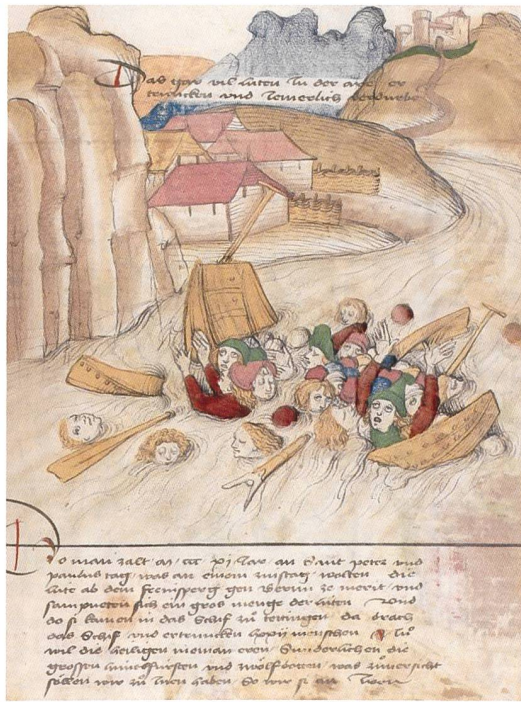 Das gar vil lüten In der are er
truncken und Jemerlich verdurbe
Do man zalt m cccc xj Jar an sant peter und
paulus tag was an einem zinstag wolten die
lüte ab dem frenisperg gen Bernn ze merit und
samnoten sich ein gros menge der lüten Und
do si kamen in das schif zů tettingen da brach
das Schif und ertruncken lxxij menschen
wil die heiligen nieman eren Sunderlichen die
grossen himelfürsten und zwölfbotten was zůversicht
söllen wir zů Inen haben So wir si an